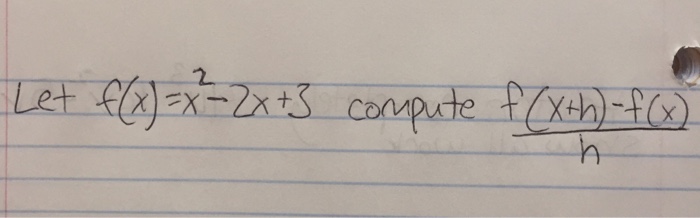 Let f(x)=x²-2x+3 compute f(x+h)-f(x)
h